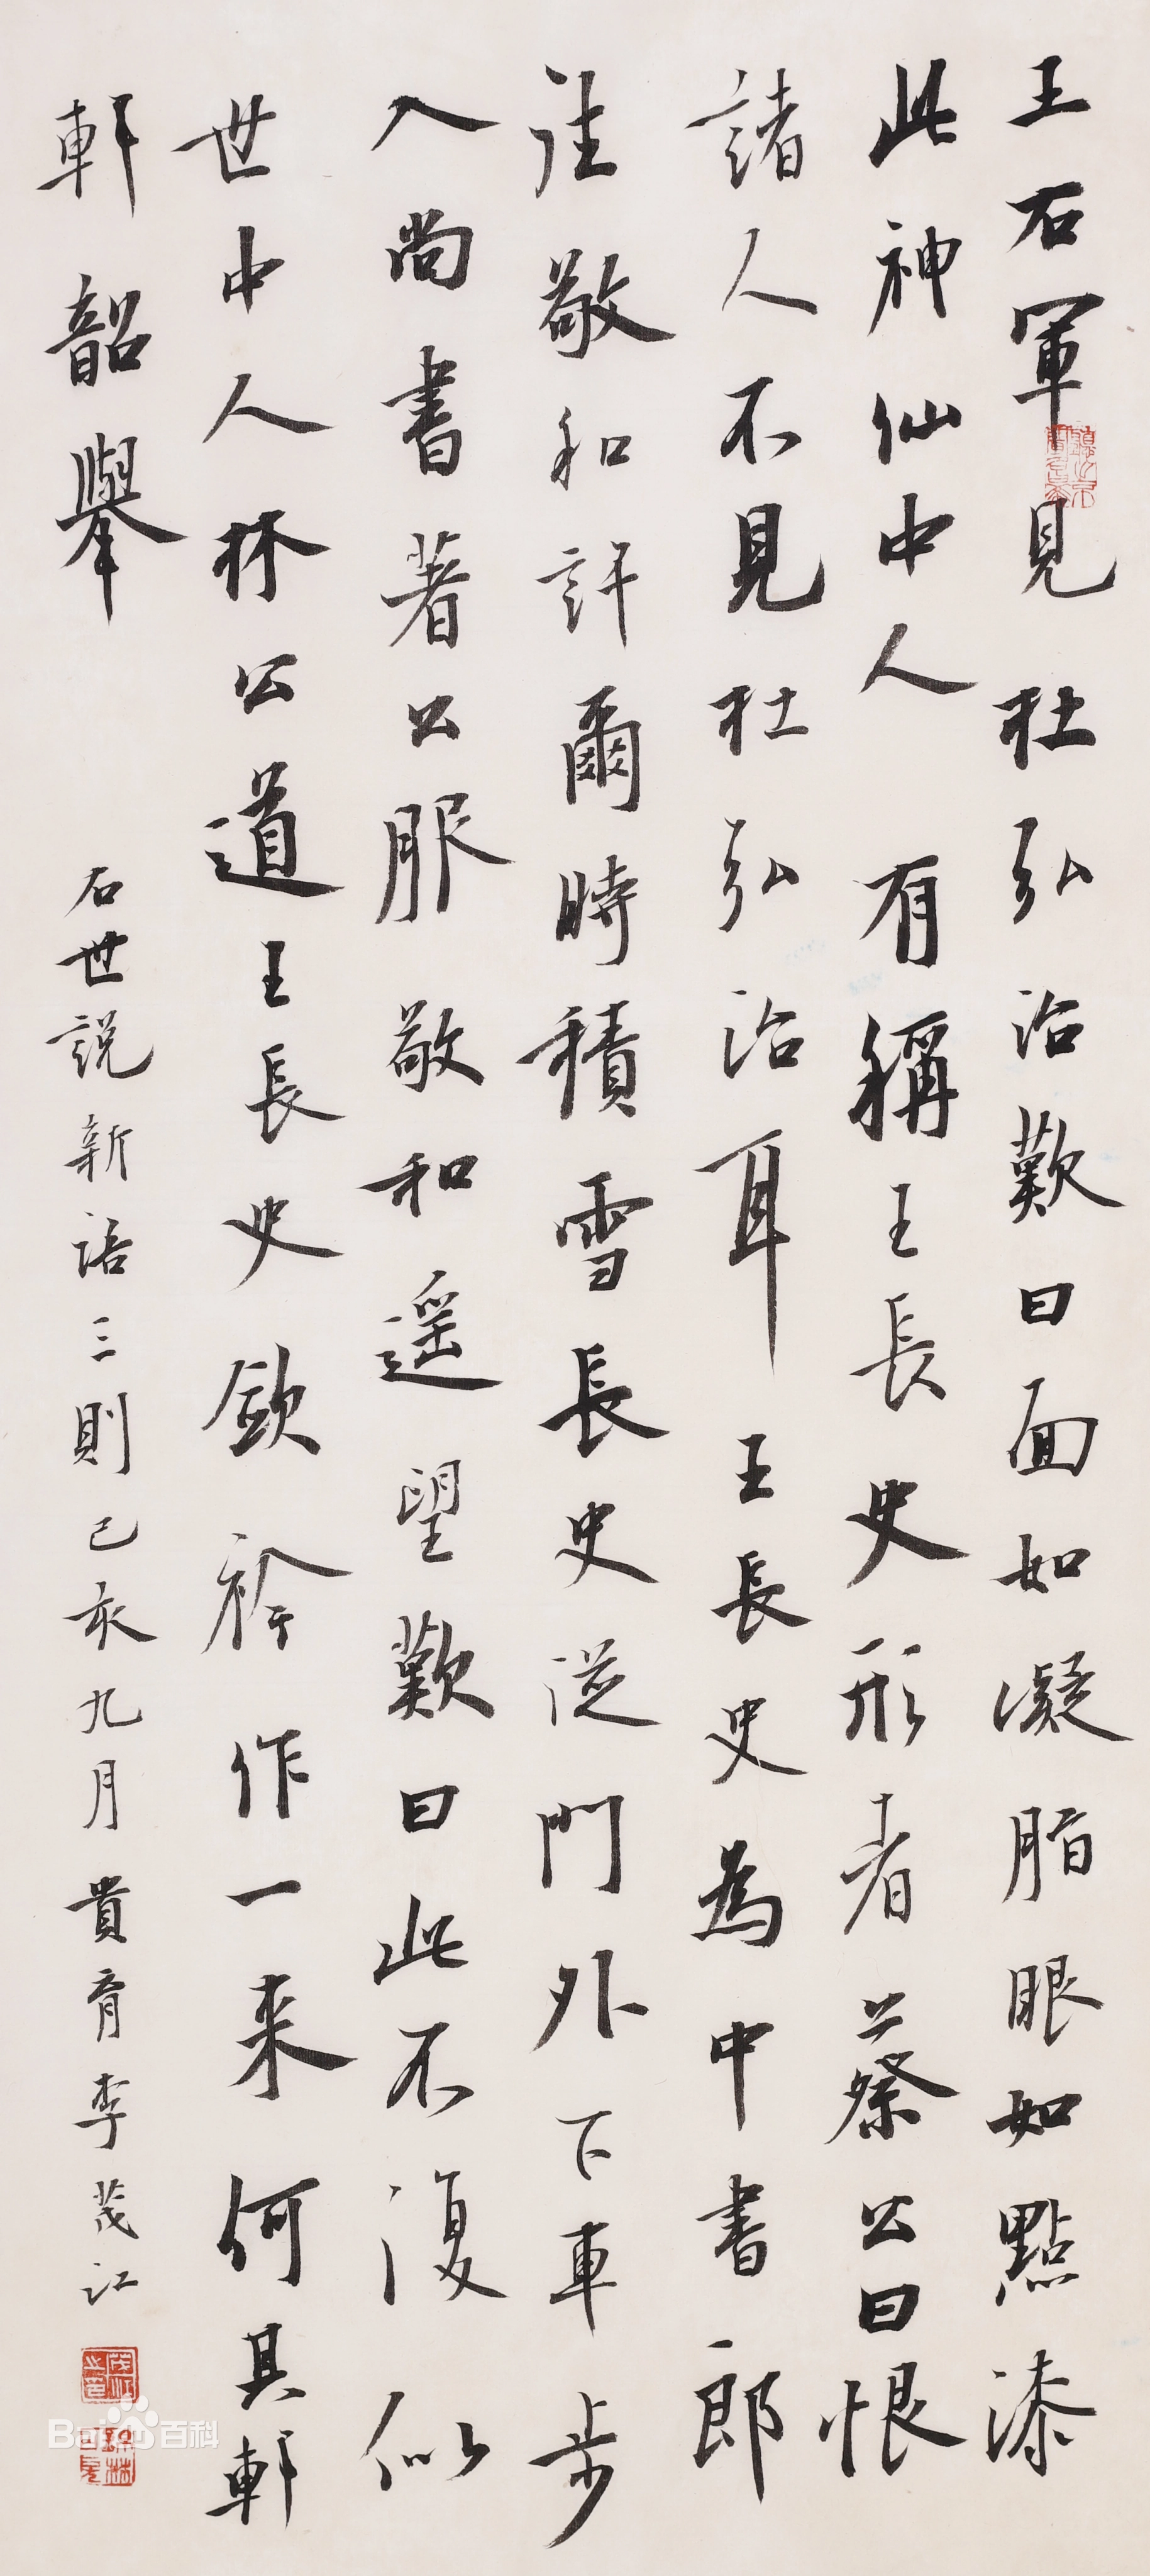 王右軍見杜弘治歎曰面如凝脂眼如點漆
此神仙中人有稱王長史形者蔡公曰恨
諸人不見杜弘治耳王長史為中書郎
往敬和許爾時積雪長史從門外下車步
入尚書著公服敬和遥望歎曰此不復似
世中人林公道王長史斂衿作一来何其軒
軒韶舉
右世說新語三則己亥九月貴育李茂江
Bai百科